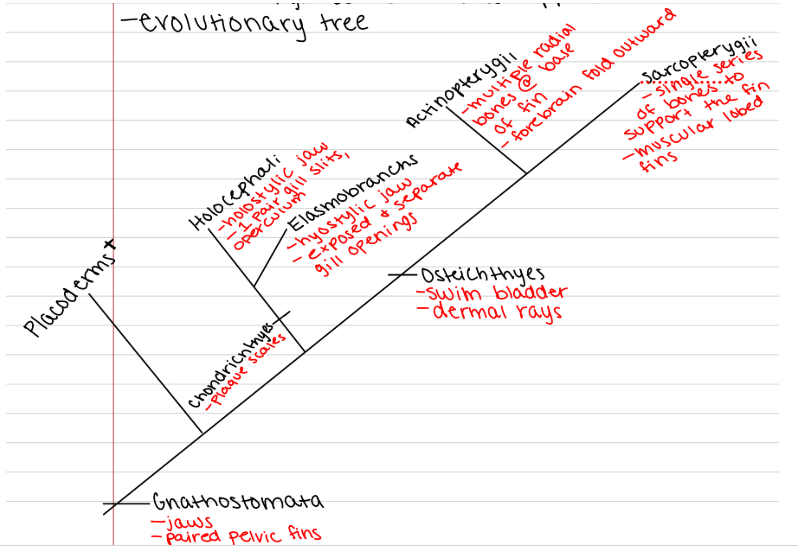 -evolutionary tree
Actinopterygii
-multiple radial
bones @ base
of fin
-forebrain fold outward
Sarcopterygii
-single series
of bones to
support the fin
-muscular lobed
fins
Holocephali
-holostylic jaw
-1 pair gill slits,
operculum
Elasmobranchs
-hyostylic jaw
-exposed & separate
gill openings
Placoderms†
Osteichthyes
-swim bladder
-dermal rays
Chondrichthyes
-plaque scales
Gnathostomata
-jaws
-paired pelvic fins